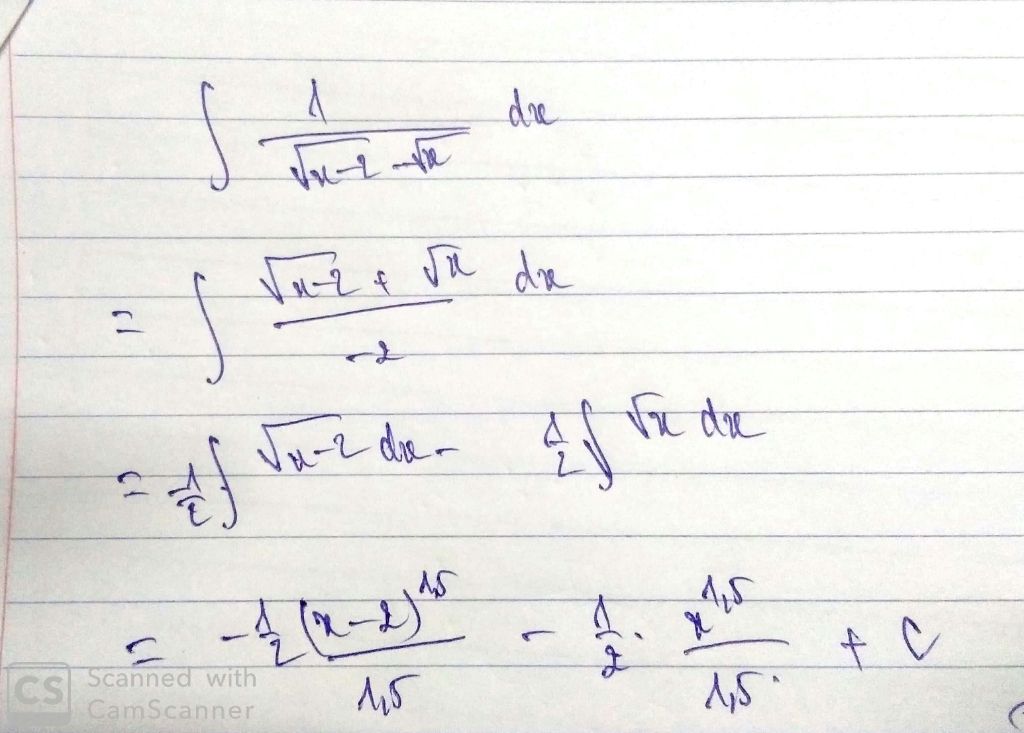 ∫ 1/(√(x-2) - √x) dx
= ∫ (√(x-2) + √x)/(-2) dx
= -1/2 ∫ √(x-2) dx - 1/2 ∫ √x dx
= -1/2 (x-2)^1,5/1,5 - 1/2 · x^1,5/1,5 + C
CS Scanned with
CamScanner